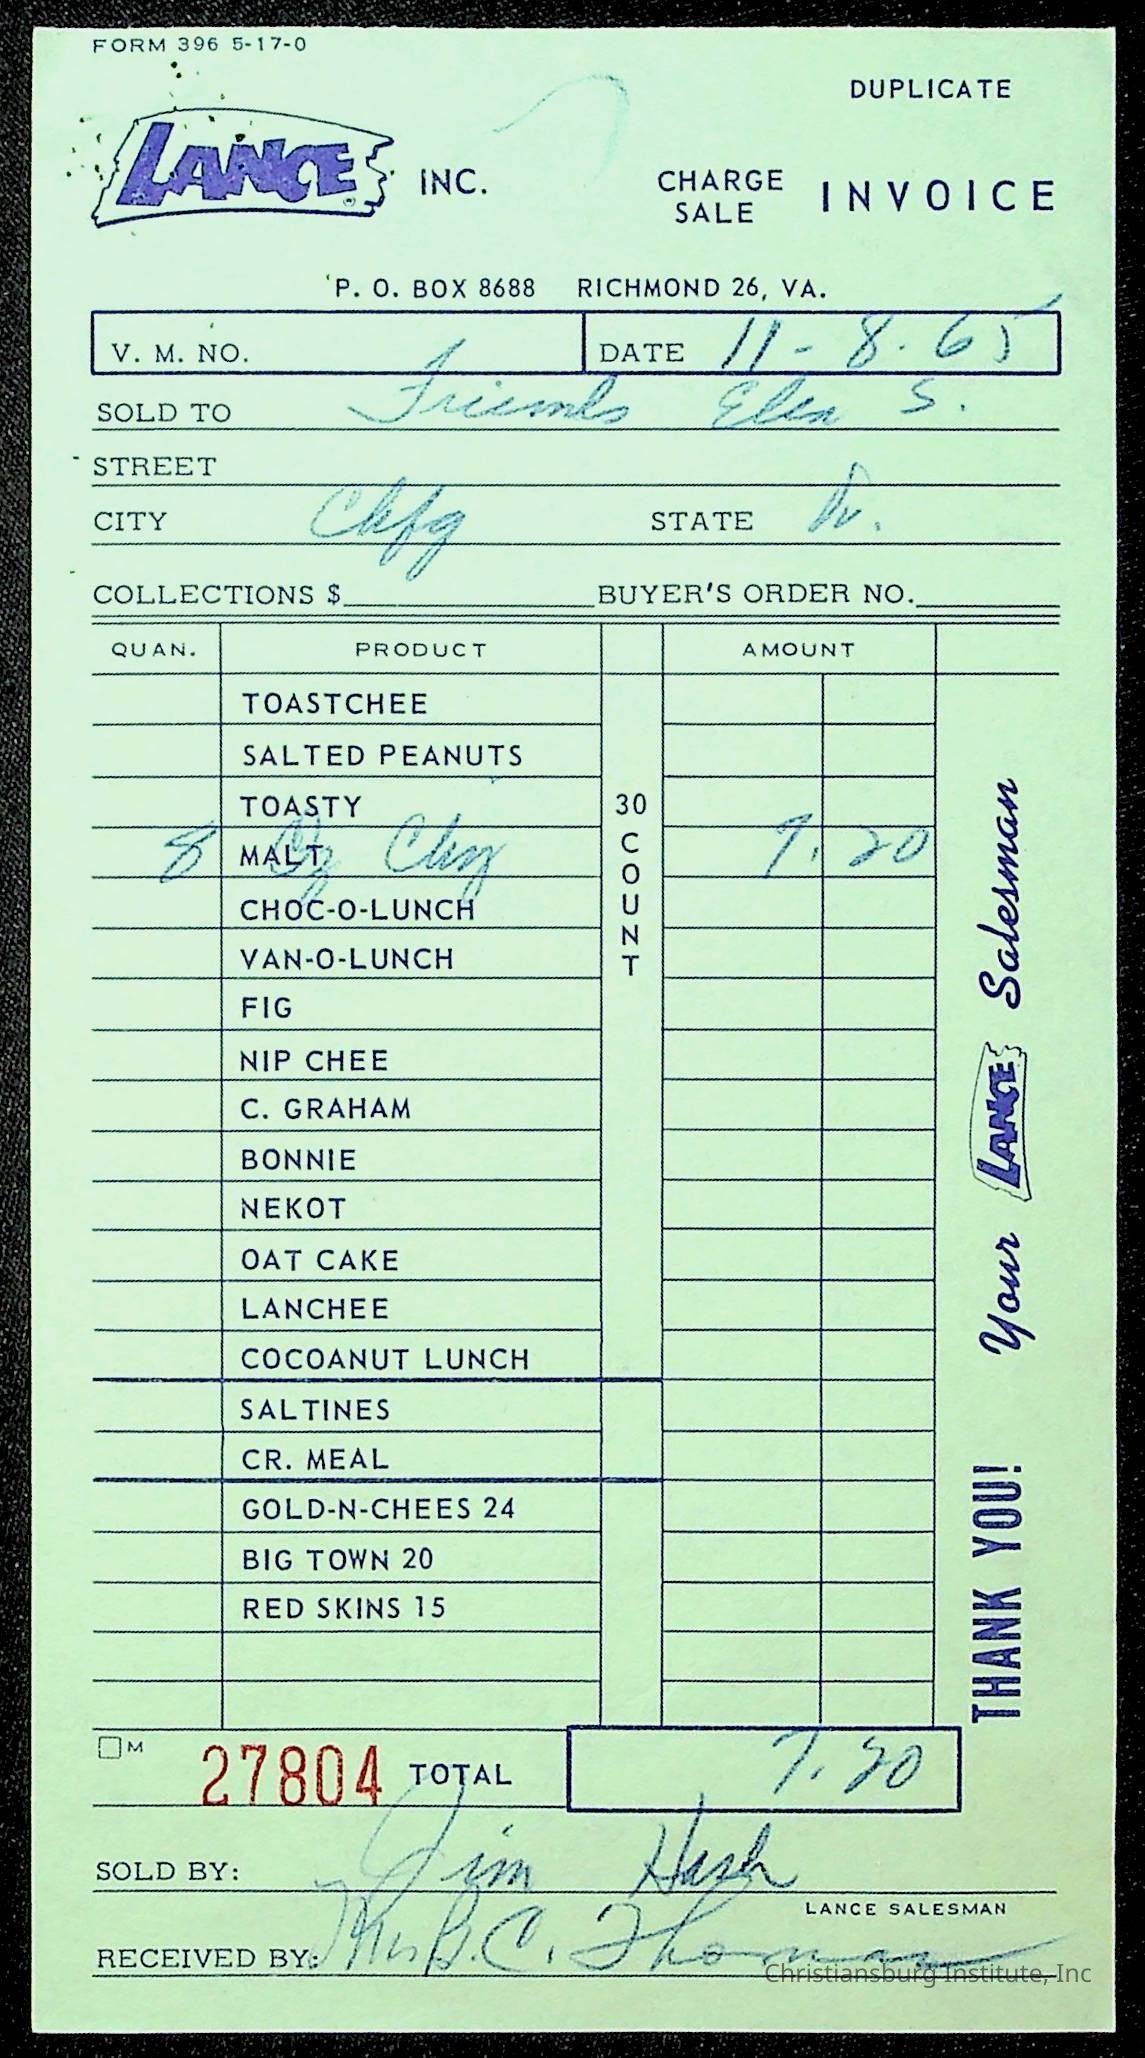 FORM 396 5-17-0
DUPLICATE
LANCE INC. CHARGE SALE INVOICE
P. O. BOX 8688 RICHMOND 26, VA.
V. M. NO. DATE 11-8-65
SOLD TO Friends Elem S.
STREET
CITY Chfg STATE
COLLECTIONS $ BUYER'S ORDER NO.
QUAN. PRODUCT AMOUNT
TOASTCHEE
SALTED PEANUTS
TOASTY
8 MALT 7.20
CHOC-O-LUNCH
VAN-O-LUNCH
FIG
NIP CHEE
C. GRAHAM
BONNIE
NEKOT
OAT CAKE
LANCHEE
COCOANUT LUNCH
30 COUNT
SALTINES
CR. MEAL
GOLD-N-CHEES 24
BIG TOWN 20
RED SKINS 15
THANK YOU! Your LANCE Salesman
M 27804 TOTAL 7.20
SOLD BY: Jim Hash
LANCE SALESMAN
RECEIVED BY: Mrs B.C. Thomas
Christiansburg Institute, Inc